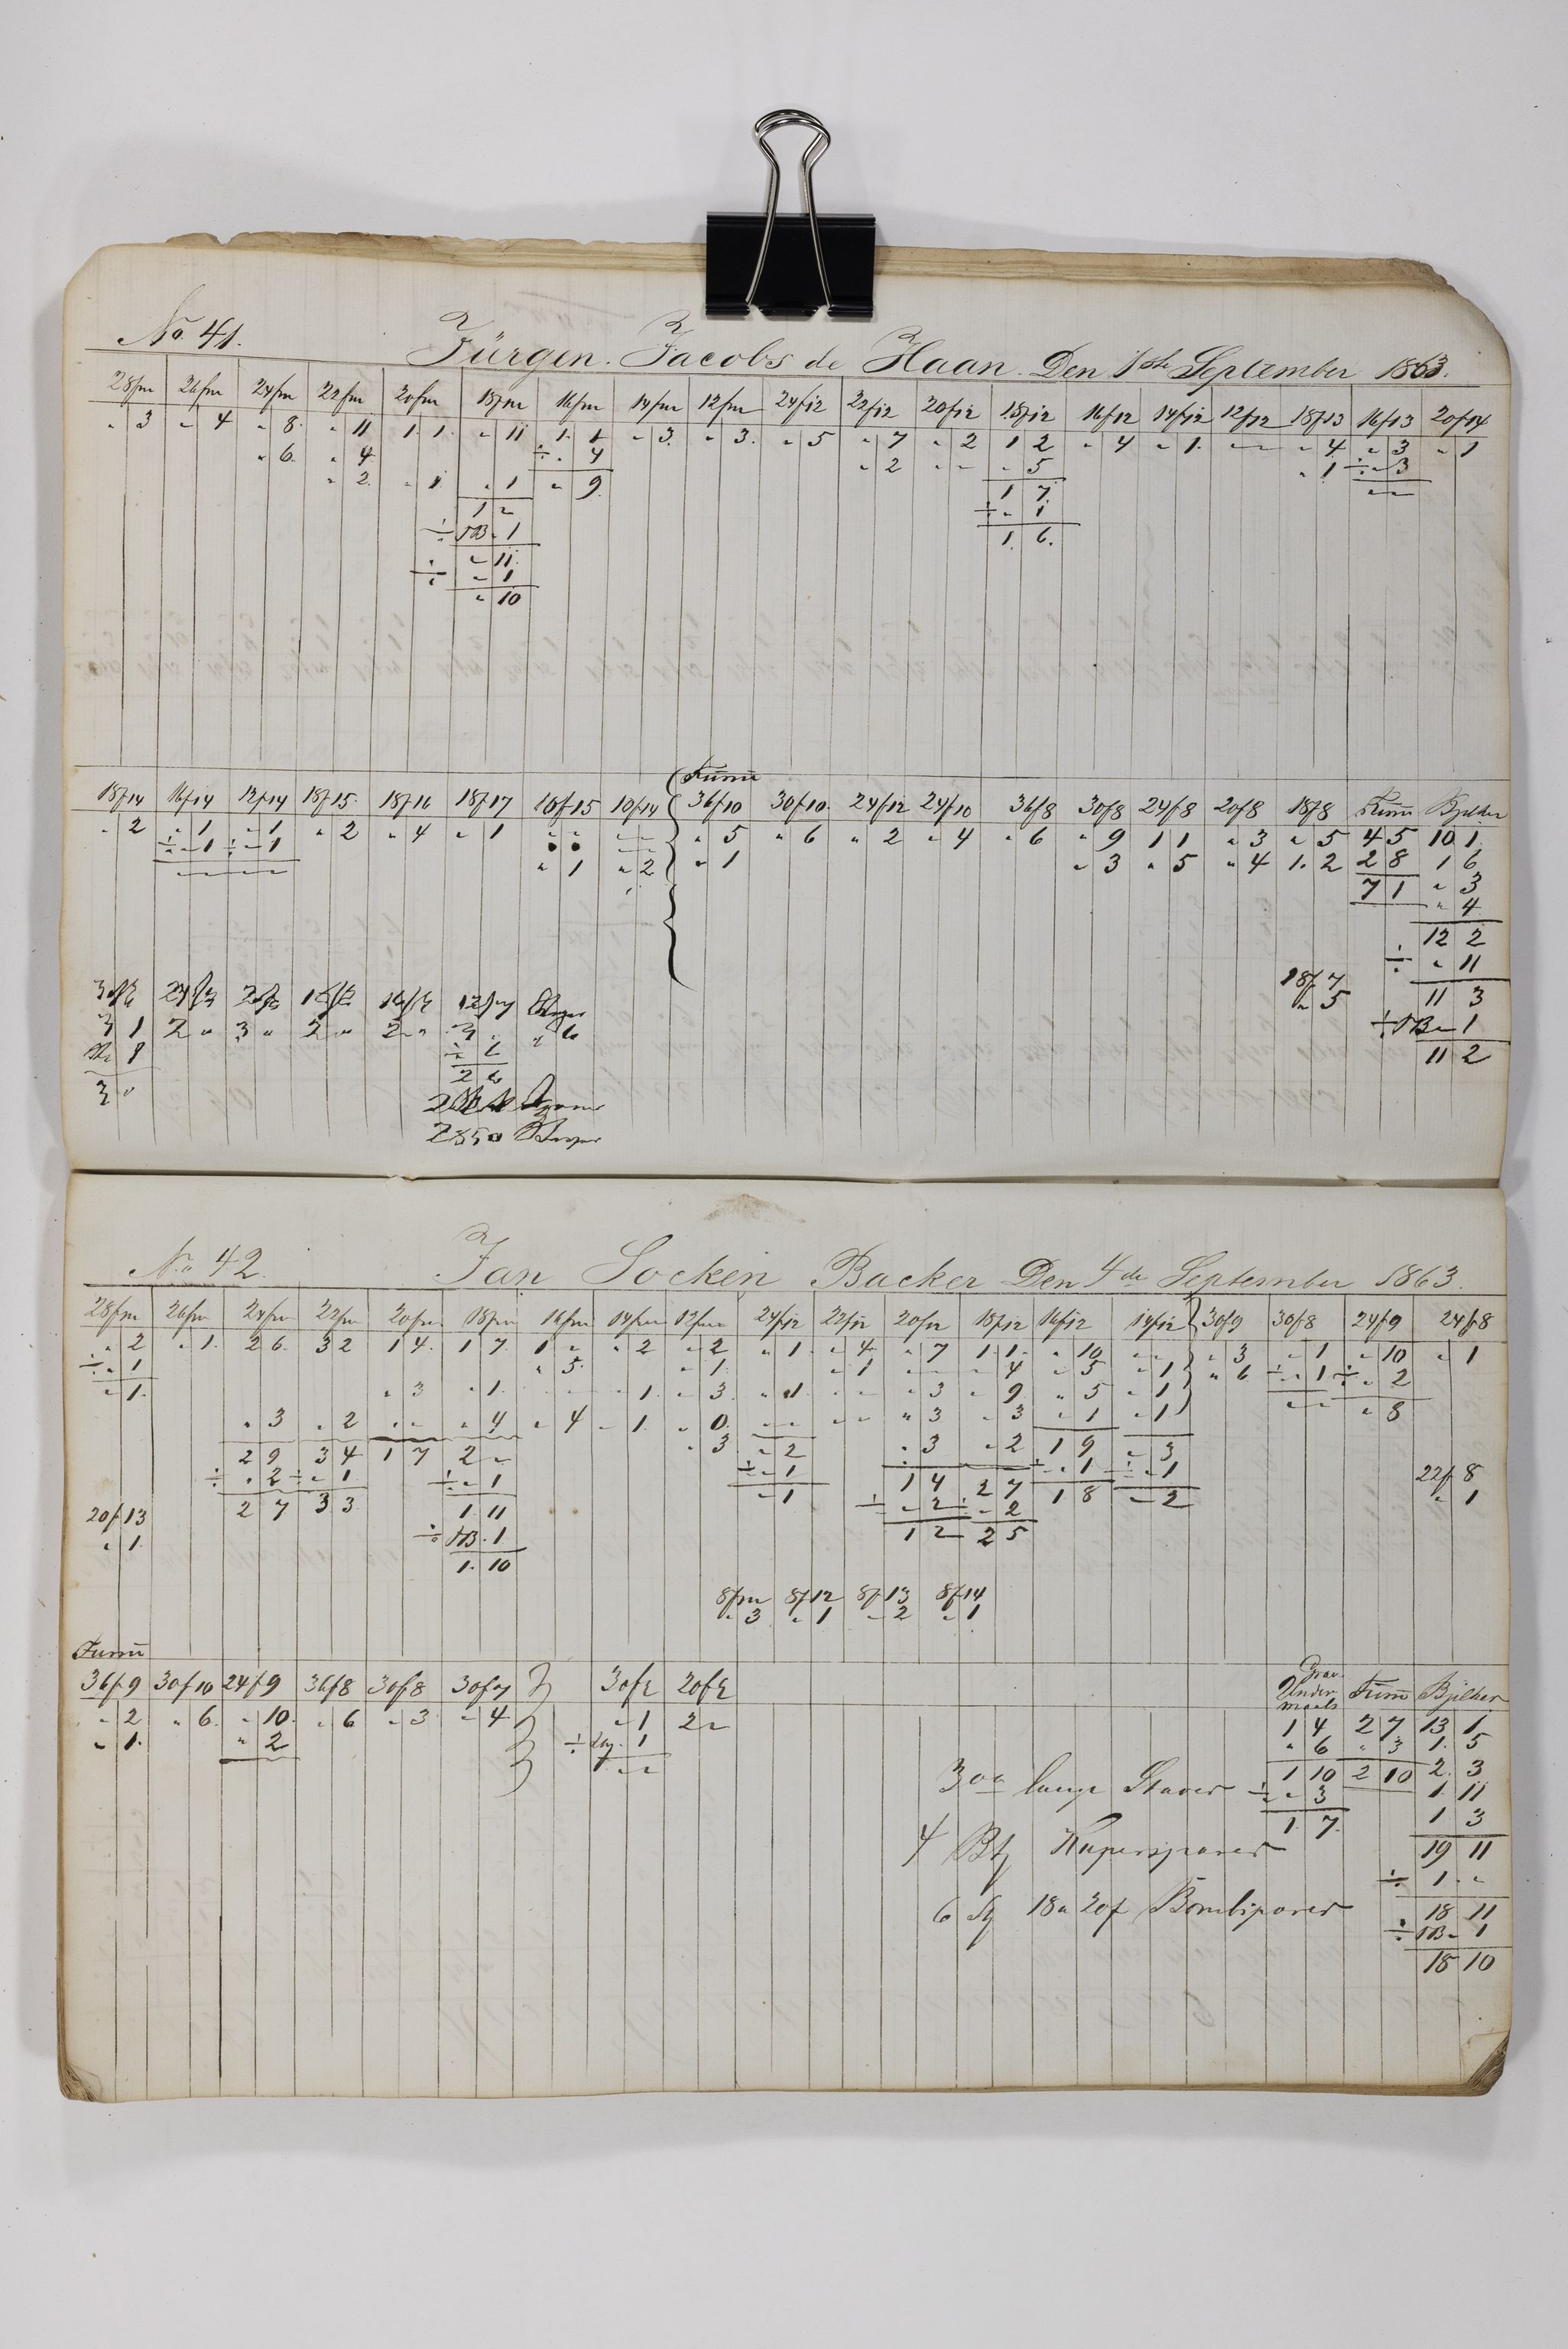 No. 41. Jürgen. Jacobs de Haan. Den 1ste September 1863.
28fm 26fm 24fm 22fm 20fm 18fm 16fm 14fm 12fm 24f12 22f12 20f12 18f12 16f12 14f12 12f12 18f13 16f13 20f14
" 3 " 4 " 8. " 11 1. 1. " 11 1. 1 " 3. " 3. " 5 " 7 " 2 1 2 " 4 " 1. " " " 4 " 3 " 1
" 6. " 4 ÷ " 4 " 2 " " " 5 " 1 ÷ " 3
" 2. " 1 " 1 " 9. 1 7. " "
1 " ÷ " 1
÷ NB " 1 1. 6.
÷ " 11.
÷ " 1
" 10
Turm
18f14 16f14 12f14 18f15. 18f16 18f17 20f15 10f14 36f10 30f10. 24f12 24f10 36f8 30f8 24f8 20f8 18f8 Turm Bjelker
" 2 " 1 " 1 " 2 " 4 " 1 " " " " " 5 " 6 " 2 " 4 " 6 " 9 1 1 " 3 " 5 4 5 10 1.
÷ " 1 ÷ " 1 " 1 " 2 " 1 " 3 " 5 " 4 1. 2 2 8 1 6
" " " " 7 1 " 3
" 4
12 2
÷ " 11
18f7 11 3
" 5 ÷ NB " 1
11 2
3 1 2 " 3 " 2 " 2 " 3 " " 6
3 "
2 6
2850
No. 42. Jan Socken Backer Den 4de September 1863.
28fm 26fm 24fm 22fm 20fm 18fm 16fm 14fm 12fm 24f12 22f12 20f12 18f12 16f12 14f12 30f9 30f8 24f9 24f8
" 2 " 1. 2 6. 3 2 1 4. 1 7. 1 " " 2 " 2 " 1. " 4. " 7 1. 1. " 10. " " " 3 " 1 " 10 " 1
÷ " 1 " 5. " 1. " 1 " " " 4 " 5 " 1 " 6 ÷ " 1 ÷ " 2
" 1. " 3 " 1. " " " 1. " 3. " 1 " " " 3 " 9. " 5 " 1 " " " 8
" 3 " 2 " " " 4 " 4 " 1. " 0. " " " " " 3 " 3 " 1 " 1
2 9 3 4 1 7 2 " " 3 " 2 " 3 " 2 1 9 " 3
÷ " 2 ÷ " 1 ÷ " 1 ÷ " 1 1 4 2 7 ÷ " 1 ÷ " 1 22f8
20f13 2 7 3 3 1. 11 " 1 ÷ " 2 ÷ " 2 1 8 " 2 " 1
" 1. ÷ NB. 1 1 2 2 5
1. 10
8fm 8f12 8f13 8f14
" 3 " 1 " 2 " 1
Turm
36f9 30f10 24f9 36f8 30f8 30f7 20f Grav. Under maals Turm Bjelker
" 2 " 6. " 10. " 6 " 3 " 4 " 1 2 " 1 4 2 7 13 1
" 1. " 2 ÷ 1 " 6 " 3 1. 5
" " 1 10 2 10 2. 3
300 lange Staver ÷ " 3 1. 11
1. 7. 1 3
4 Kupersparer 19 11
÷ 1. "
6 18 a 20f Bomsparer 18 11
÷ NB " 1
18 10